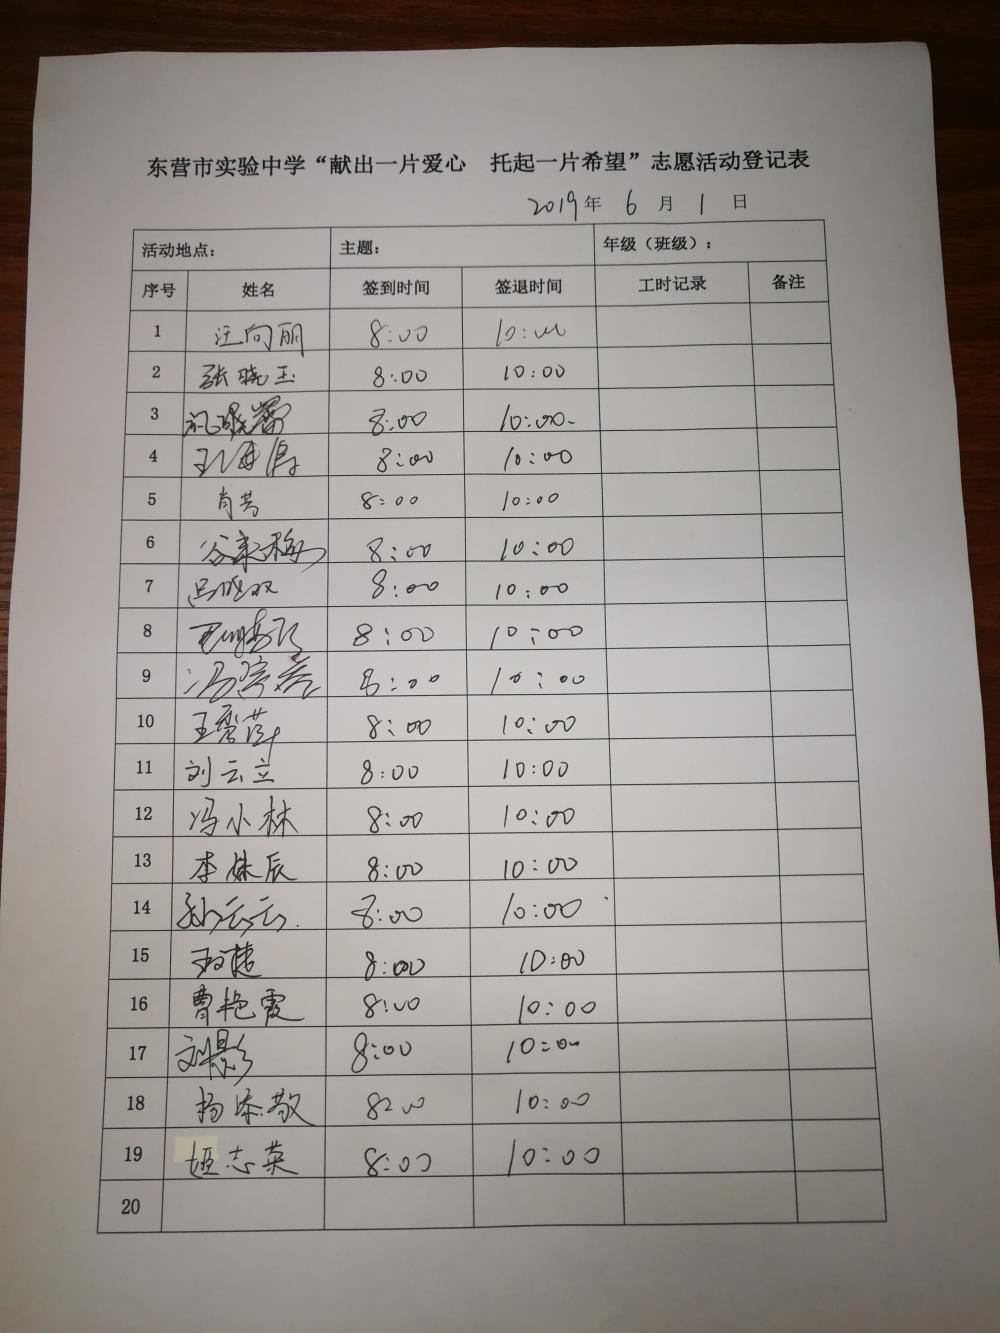 东营市实验中学“献出一片爱心 托起一片希望”志愿活动登记表
2019年 6 月 1 日
活动地点： 主题： 年级（班级）：
序号 姓名 签到时间 签退时间 工时记录 备注
1 汪向丽 8:00 10:00
2 张晓玉 8:00 10:00
3 8:00 10:00
4 王海涛 8:00 10:00
5 肖芳 8:00 10:00
6 8:00 10:00
7 吕晓双 8:00 10:00
8 8:00 10:00
9 8:00 10:00
10 王秀萍 8:00 10:00
11 刘云立 8:00 10:00
12 冯小林 8:00 10:00
13 李姝辰 8:00 10:00
14 孙云云 8:00 10:00
15 8:00 10:00
16 曹艳霞 8:00 10:00
17 刘影 8:00 10:00
18 杨添敬 8:00 10:00
19 姬志英 8:00 10:00
20